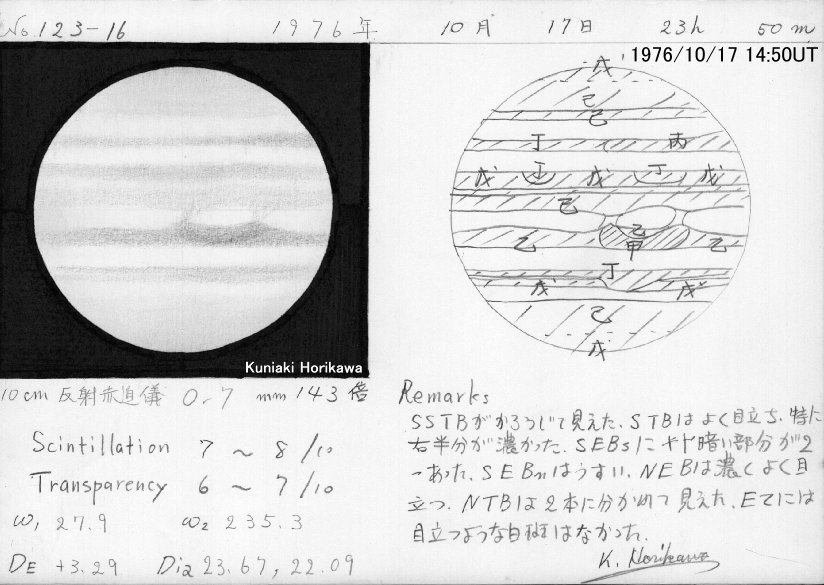 No.123-16 1976年 10月 17日 23h 50m
1976/10/17 14:50UT
戊
己
己
丁 丙
戊 丁 戊 丁 戊
己
乙
乙 甲 乙
丁
戊 戊
己
戊
Kuniaki Horikawa
10cm 反射赤道儀 O-7 mm 143倍
Scintillation 7 ~ 8 /10
Transparency 6 ~ 7 /10
ω1 27.9 ω2 235.3
DE +3.29 Dia 23.67, 22.09
Remarks
SSTBがかろうじて見えた. STBはよく目立ち, 特に
右半分が濃かった. SEBsにやや暗い部分が2
つあった. SEBnはうすい. NEBは濃くよく目
立つ. NTBは2本に分かれて見えた. EZには
目立つような白斑はなかった.
K. Horikawa